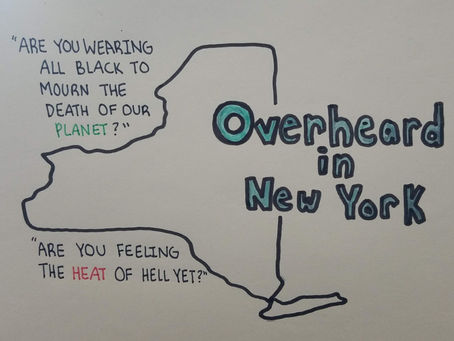 "ARE YOU WEARING
ALL BLACK TO
MOURN THE
DEATH OF OUR
PLANET?"
Overheard
in
New York
"ARE YOU FEELING
THE HEAT OF HELL YET?"